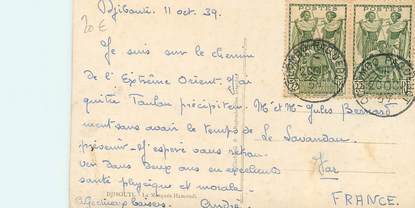 Djibouti. 11 oct. 39.
20 €
POSTES
POSTES
Je suis sur le chemin
de l'Extrême Orient. J'ai
quitté Toulon précipitem-
ment sans avoir le temps de
présenir. J'espère vous retrou-
ver dans deux ans en excellente
santé physique et morale.
Bons baisers. André
Mr et Me Jules Bernard
Le Lavandou
Var
FRANCE.
DJIBOUTI. _ La Mosquée Hamoudi